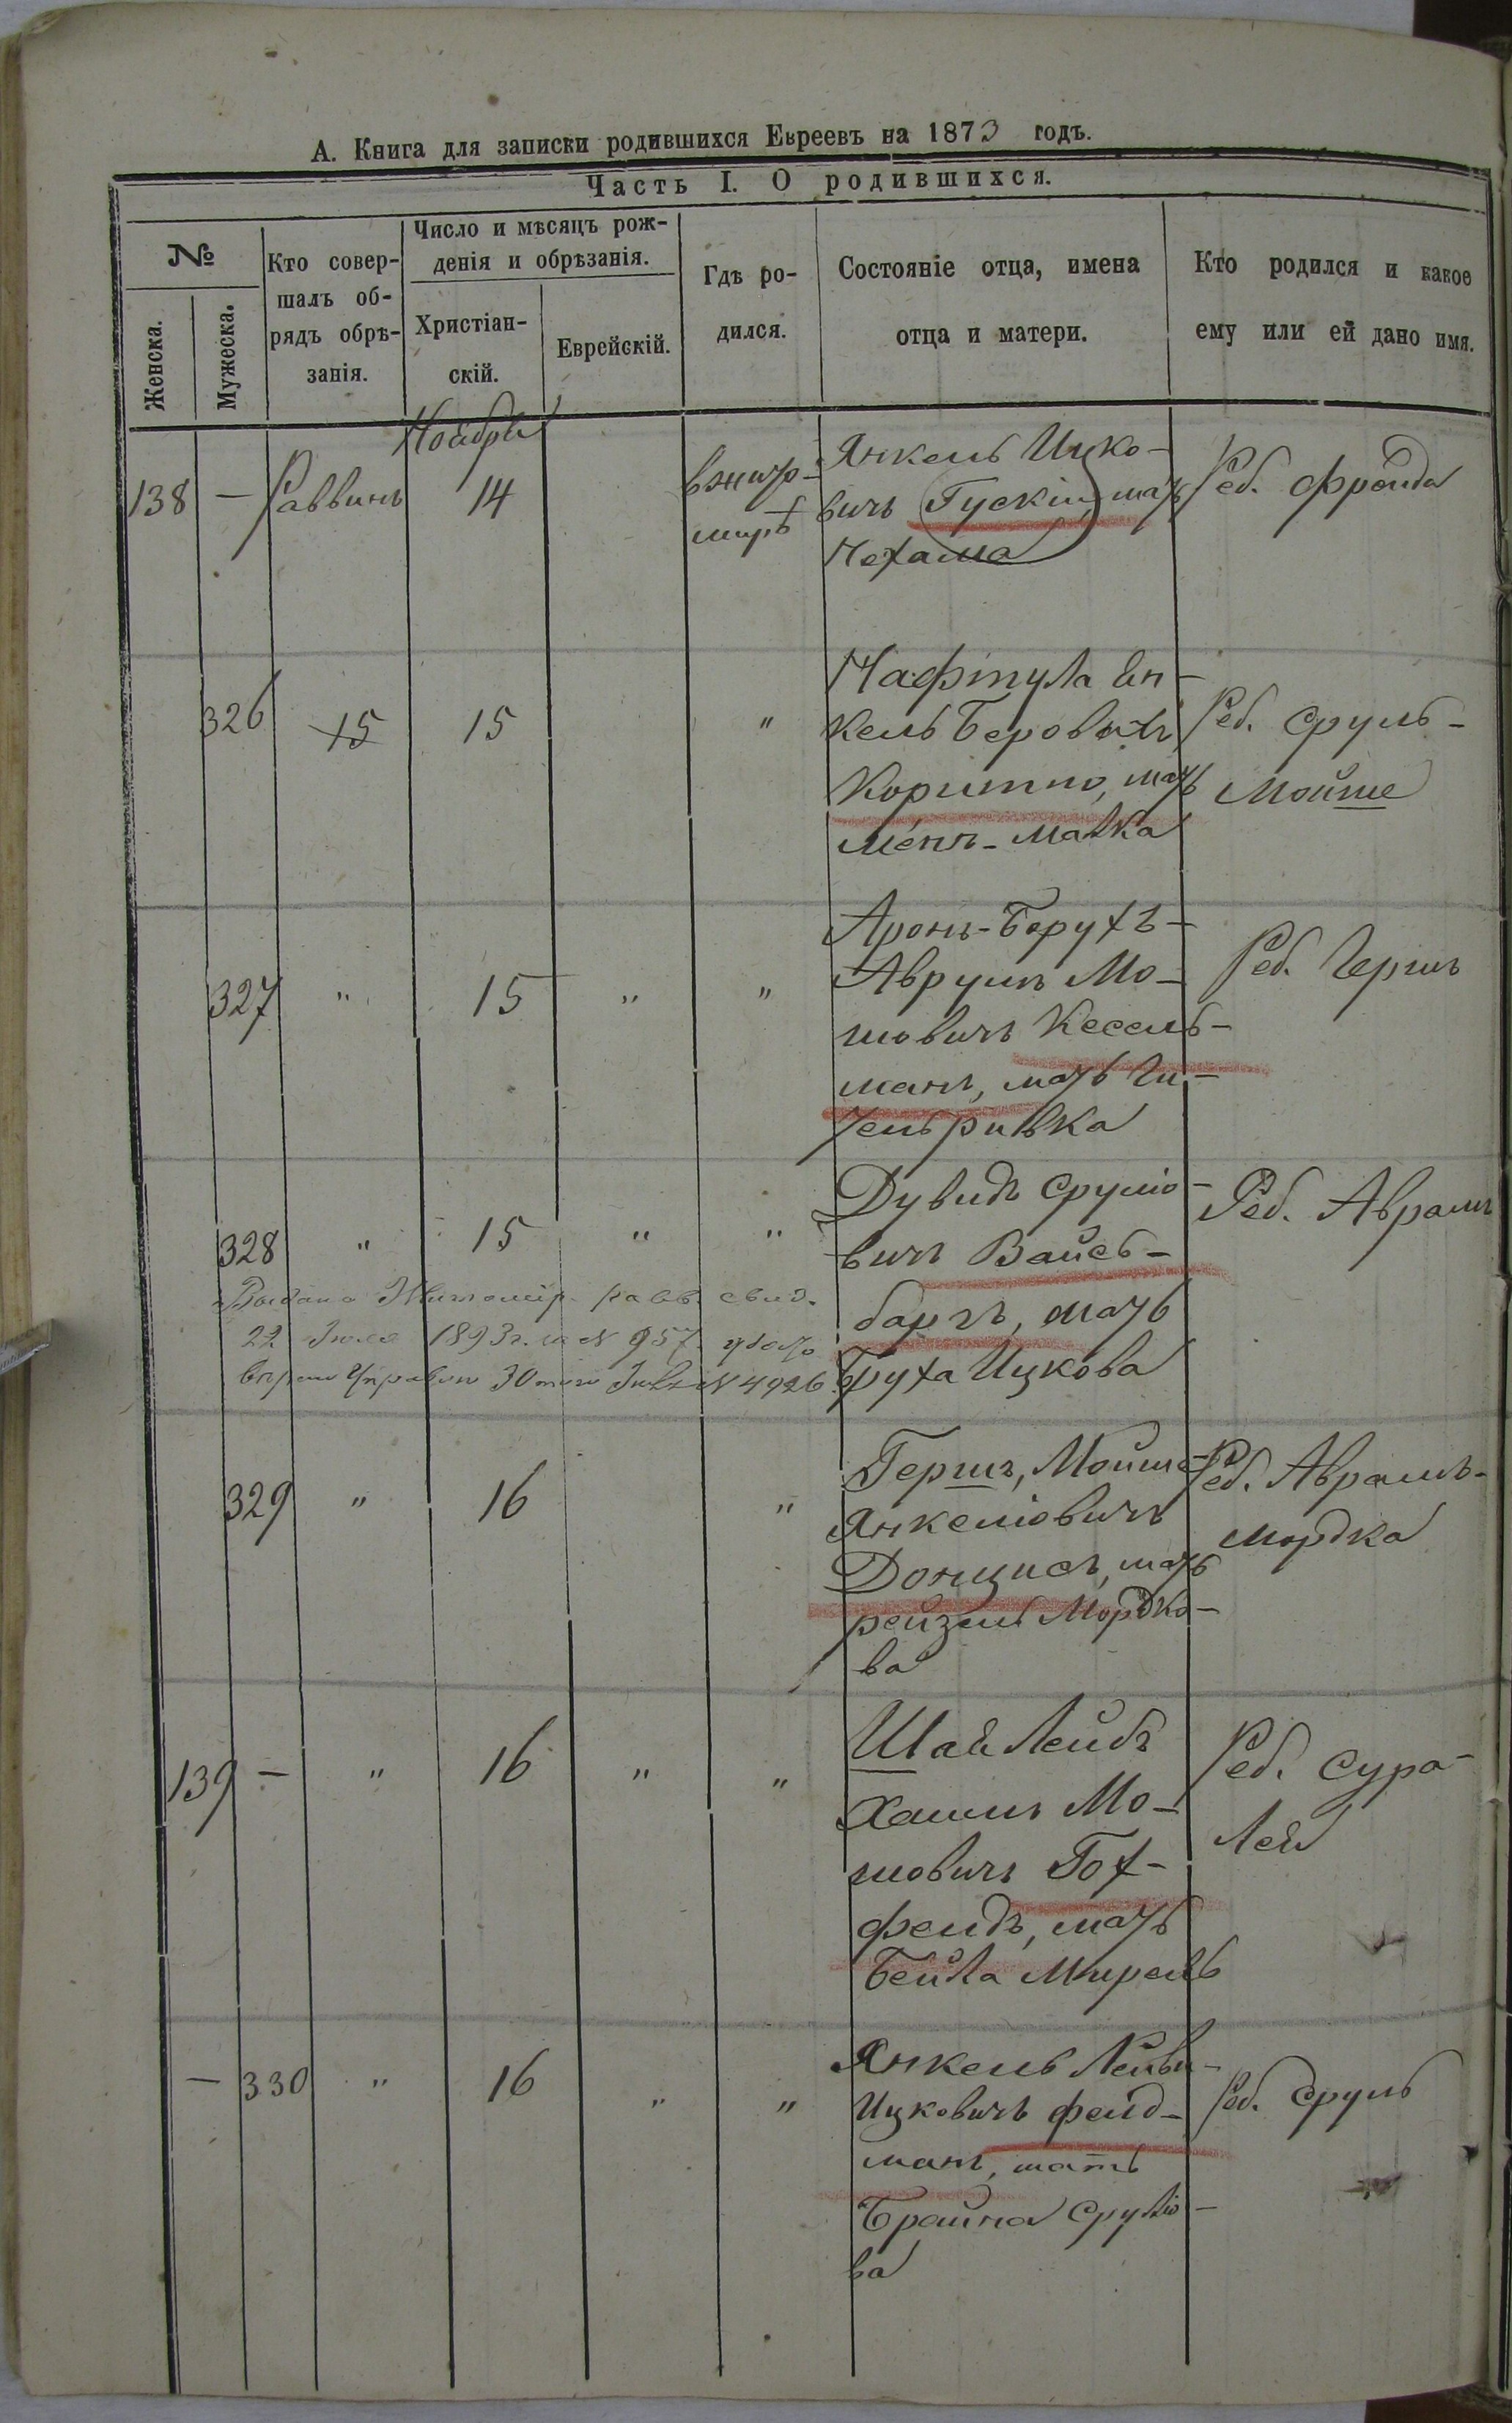 А. Книга для записки родившихся Евреевъ на 1873 годъ.
Часть I. О родившихся.
№
Женска.
Мужеска.
Кто совер-
шалъ об-
рядъ обрѣ-
занія.
Число и мѣсяцъ рож-
денія и обрѣзанія.
Христіан-
скій.
Еврейскій.
Гдѣ ро-
дился.
Состояніе отца, имена
отца и матери.
Кто родился и какое
ему или ей дано имя.
Ноября
138 — Раввинъ 14
в житр-
мирѣ
Янкель Ицко-
вичъ Гускін, мать
Нехама
Реб. Фройда
326 15 15 "
Нафтула Ян-
кель Беровичъ
Коритно, мать
Мення-Малка
Реб. Сруль-
Мойше
327 " 15 " "
Аронъ-Борухъ-
Аврумъ Мо-
шовичъ Кесель-
манъ, мать Ги-
тель ривка
Реб. Гершъ
328 " 15 " "
Дувидъ Сруліо-
вичъ Вайсь-
баргъ, мать
Бруха Ицкова
Реб. Аврамъ
Выдано Житомір. равв. свид.
22 Іюля 1893 г. за N 957
Управы 30 Іюля N 4926
329 " 16 "
Гершъ, Мойше-
Янкеліовичъ
Донцисъ, мать
рейзель Мордко-
ва
Реб. Аврамъ-
мордка
139 — " 16 " "
Шая Лейбъ
Хаимъ Мо-
шовичъ Гох-
фельдъ, мать
Бейла Мирель
Реб. Сура-
Лея
— 330 " 16 " "
Янкель Лейви-
Ицковичъ фельд-
манъ, мать
Брайна Сруліо-
ва
Реб. Сруль